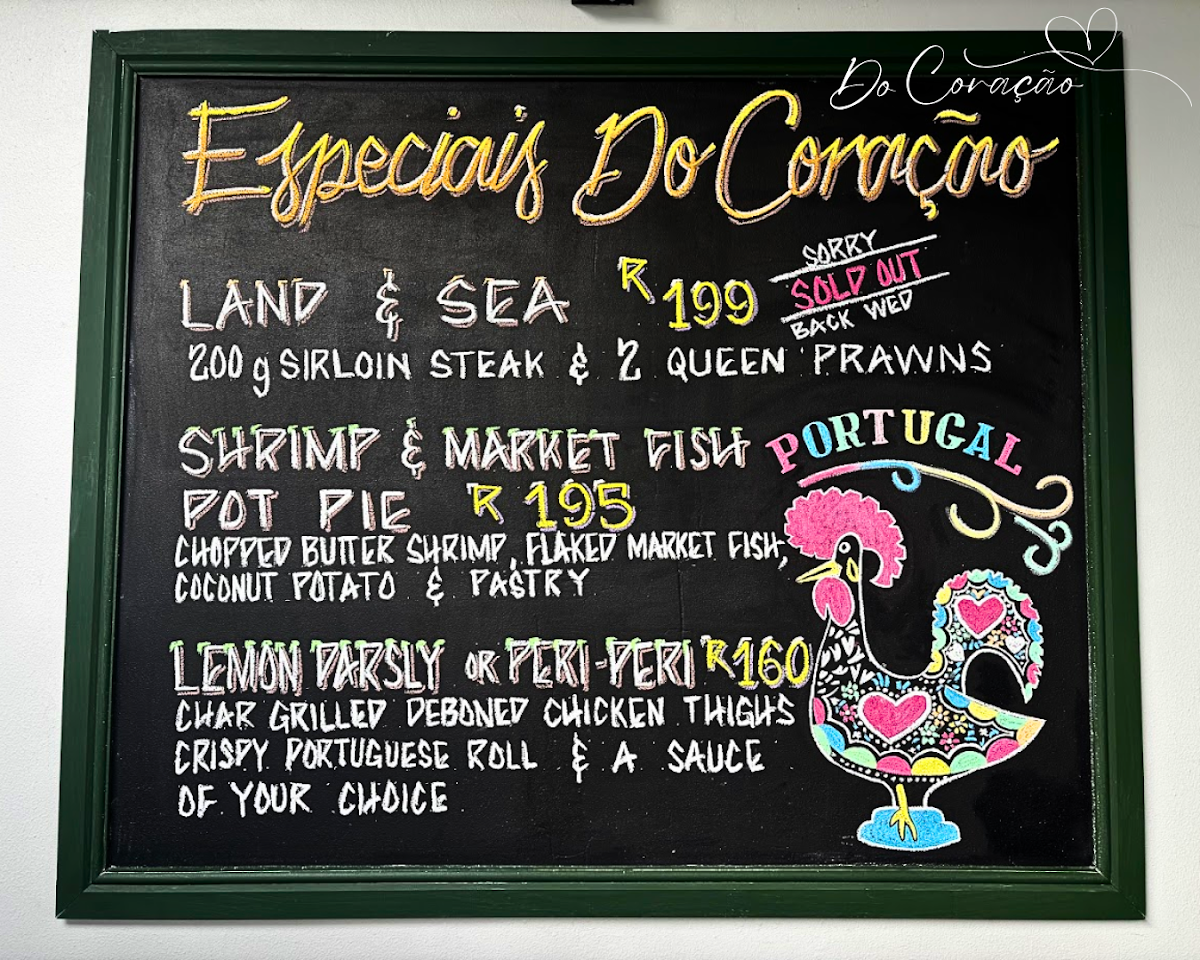 Do Coração
Especiais Do Coração
LAND & SEA R199
SORRY
SOLD OUT
BACK WED
200g SIRLOIN STEAK & 2 QUEEN PRAWNS
SHRIMP & MARKET FISH
POT PIE R195
CHOPPED BUTTER SHRIMP, FLAKED MARKET FISH,
COCONUT POTATO & PASTRY
PORTUGAL
LEMON PARSLY OR PERI-PERI R160
CHAR GRILLED DEBONED CHICKEN THIGHS
CRISPY PORTUGUESE ROLL & A SAUCE
OF YOUR CHOICE